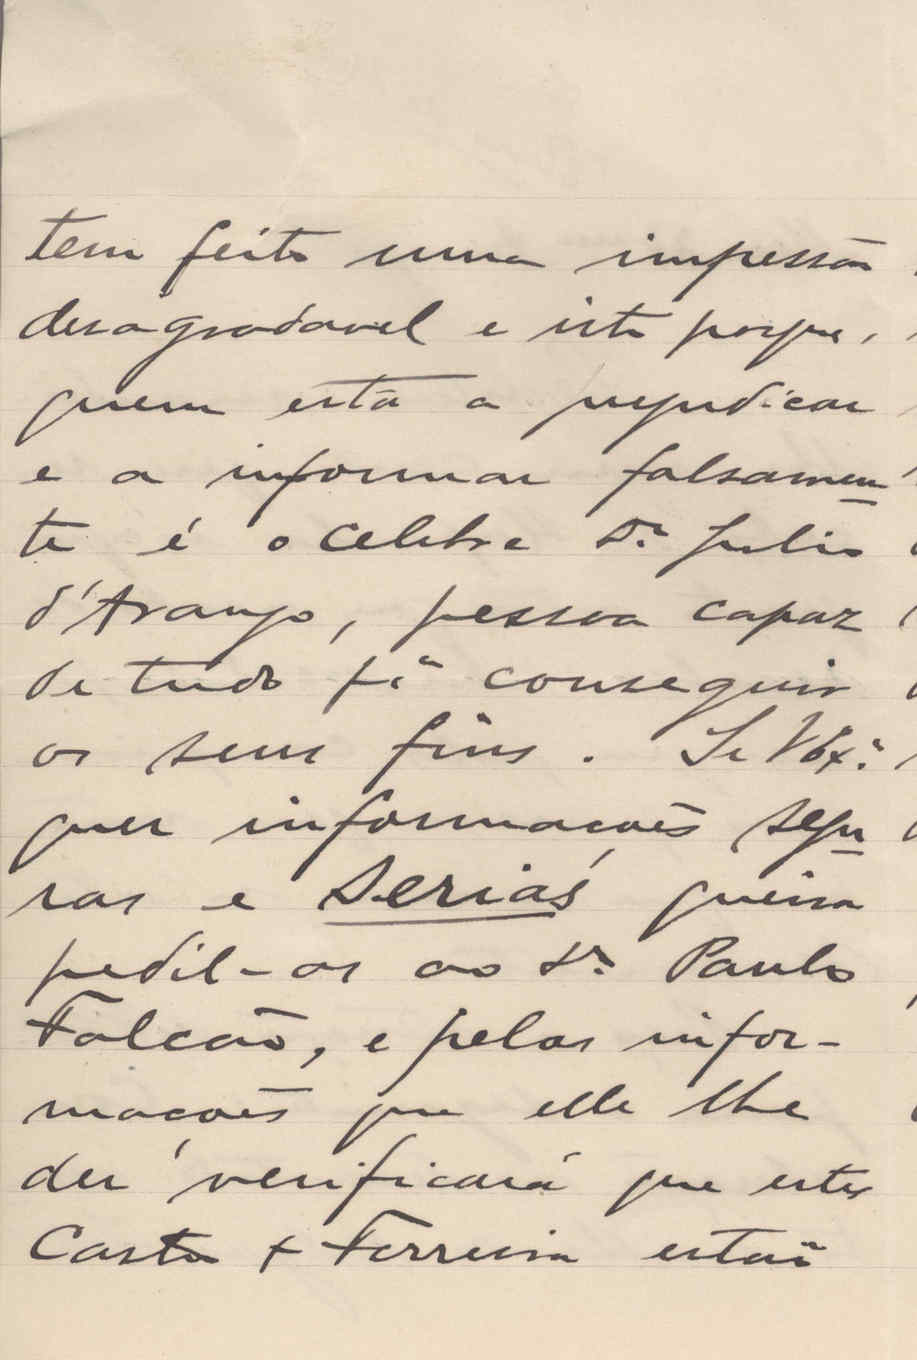 tem feito uma impessão
desagradavel e isto porque,
quem está a prejudicar
e a informar falsamen
te é o celebre Sr. Julio
d'Araujo, pessoa capaz
de tudo pª conseguir
os seus fins. Se V. Exª.
quer informações segu
ras e serias queira
pedil-as ao Sr. Paulo
Falcão, e pelas infor-
mações que elle lhe
der verificará que estes
Costa & Ferreira estão